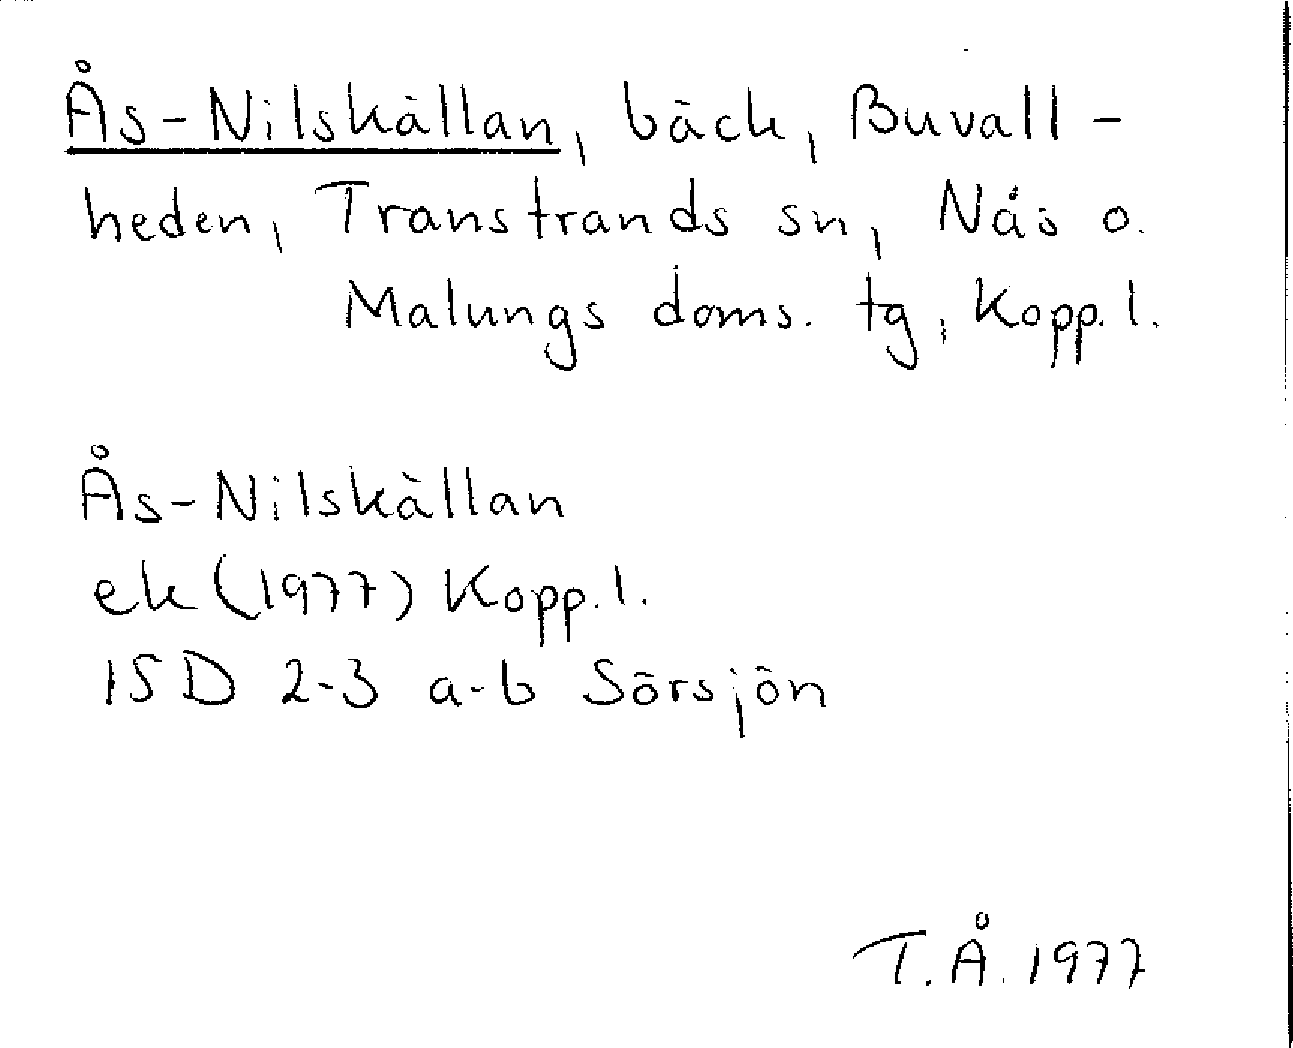 Ås-Nilskällan, bäck, Buvall-
heden, Transtrands sn, Nås o.
Malungs doms. tg, Kopp. l.
Ås-Nilskällan
ek (1977) Kopp. l.
15D 2-3 a-b Sörsjön
T.Å. 1977